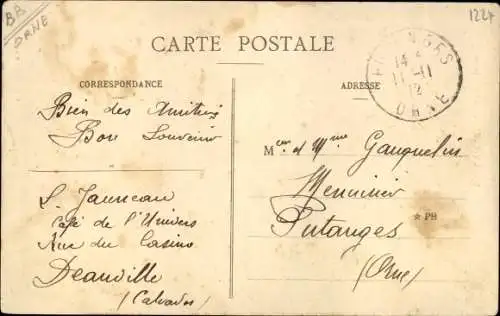 BB
ORNE
1224
CARTE POSTALE
CORRESPONDANCE
ADRESSE
14
11-11
12
ORNE
Bien des Amitiés
Bon Souvenir
L. Jauneau
Café de l'Univers
Rue du Casino
Deauville
(Calvados)
Meur et Mme Gauquelin
Meunier
Putanges
★ PH
(Orne)